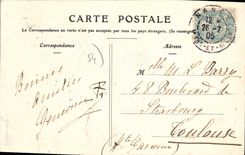 CARTE POSTALE
La correspondance au recto n'est pas acceptée par tous les pays étrangers. (Se renseigner
Correspondance
Adresse
NANCY
26-7
05
54
Bonnes
Amitiés
Melle M. L. Barry
48 Boulevard de
Strasbourg
Toulouse
(Hte Garonne)